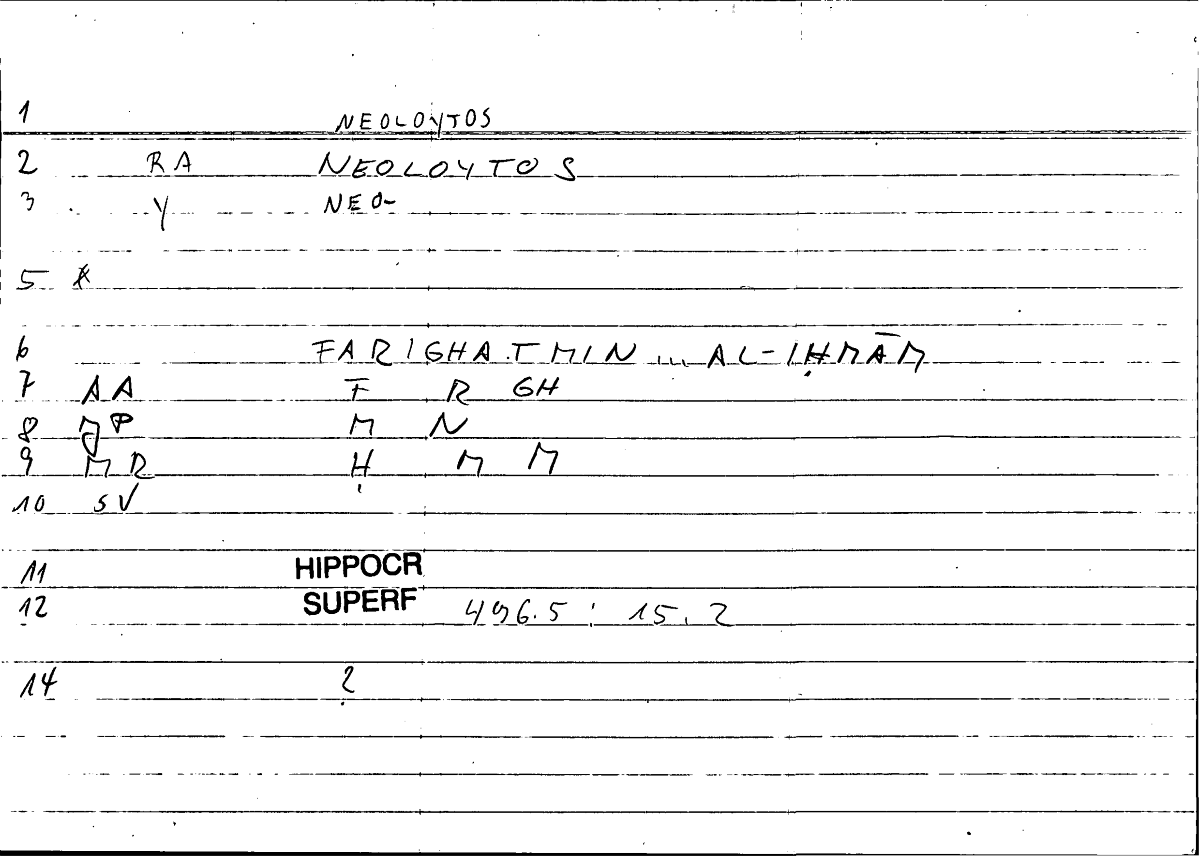 1 NEOLOYTOS
2 RA NEOLOYTOS
3 Y NEO-
5 *
6 FARIGHAT MIN ... AL-IḤMĀM
7 AA F R GH
8 M N
9 MR Ḥ M M
10 SV
11 HIPPOCR
12 SUPERF 496.5 : 15.2
14 ?